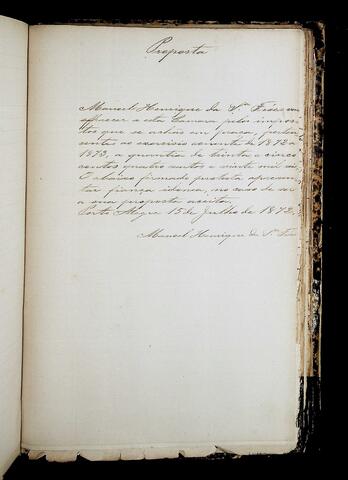 Proposta
Manoel Henrique da S.ª Fróes vem
offerecer a esta Camara pelos impos-
tos que se achão em praça, perten-
centes ao exercicio corrente de 1872 a
1873, a quantia de trinta e cinco
contos quatro centos e vinte mil rs.
O abaixo firmado protesta apresen-
tar fiança idonea, no caso de ser
a sua proposta aceita.
Porto Alegre 15 de Julho de 1872.
Manoel Henrique da S.ª